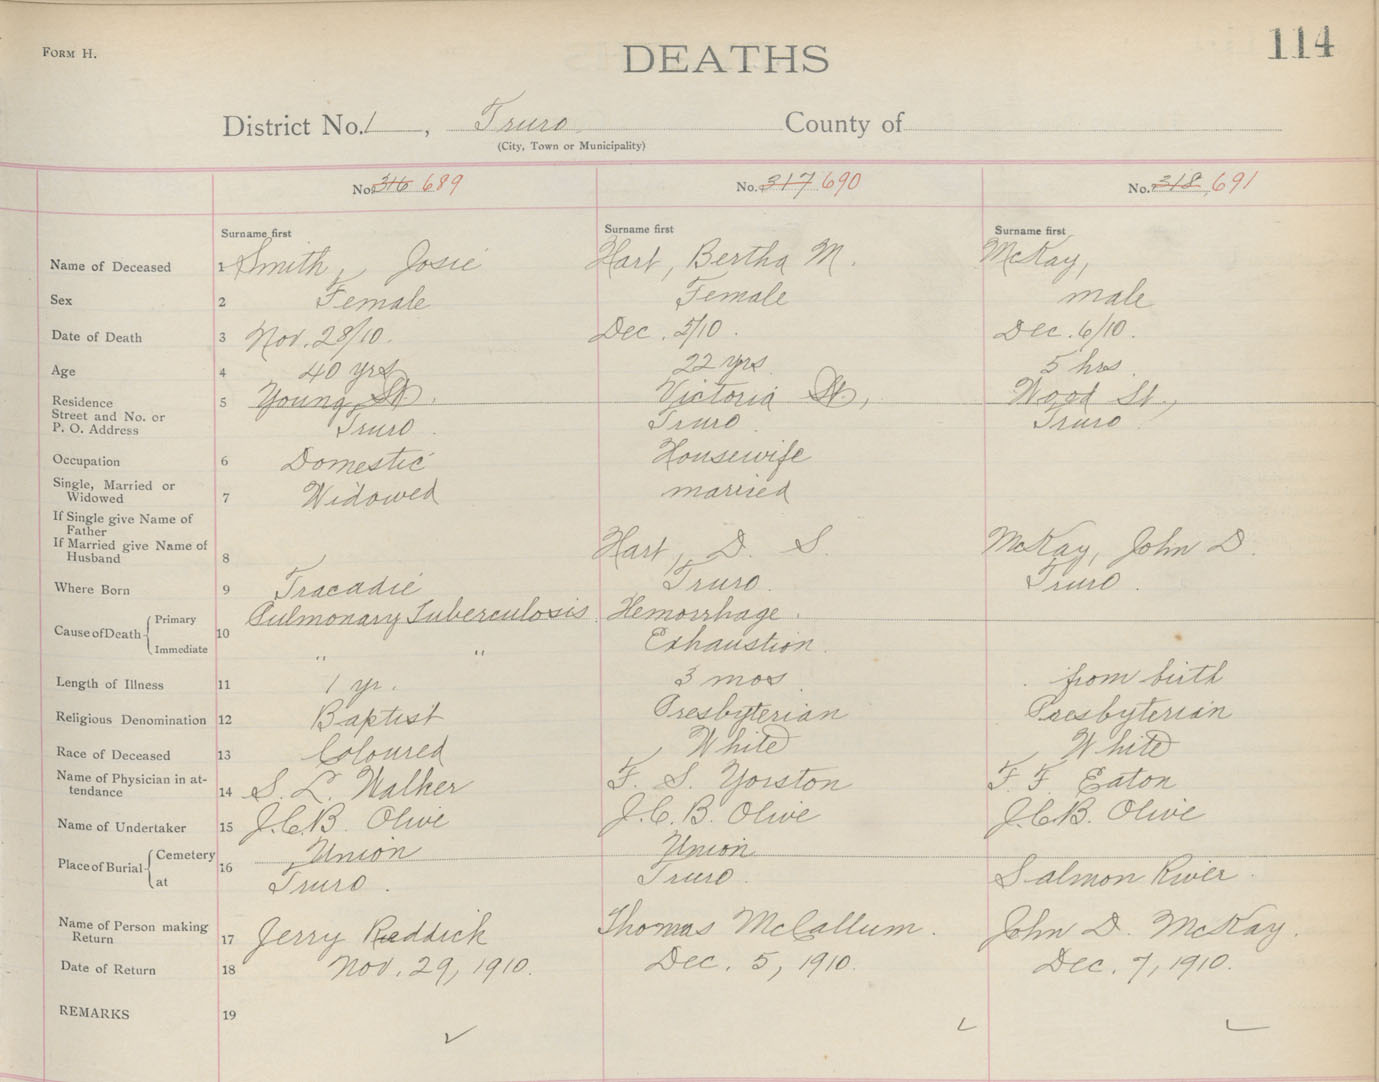 FORM H.
DEATHS
114
District No. 1, Truro County of
(City, Town or Municipality)
No. 316 689 No. 317 690 No. 318 691
Surname first Surname first Surname first
Name of Deceased 1 Smith, Josie Hart, Bertha M. McKay,
Sex 2 Female Female male
Date of Death 3 Nov. 28/10. Dec. 5/10. Dec. 6/10.
Age 4 40 yrs 22 yrs 5 hrs.
Residence 5 Young St. Victoria St., Wood St.,
Street and No. or
P. O. Address Truro. Truro. Truro
Occupation 6 Domestic Housewife
Single, Married or
Widowed 7 Widowed married
If Single give Name of
Father
If Married give Name of
Husband 8 Hart, D. S. McKay, John D.
Where Born 9 Tracadie Truro. Truro.
Cause of Death Primary 10 Pulmonary Tuberculosis. Hemorrhage.
Immediate " " Exhaustion.
Length of Illness 11 1 yr. 3 mos. from birth
Religious Denomination 12 Baptist Presbyterian Presbyterian
Race of Deceased 13 Coloured White White
Name of Physician in at-
tendance 14 S. L. Walker F. S. Yorston F. F. Eaton
Name of Undertaker 15 J.C.B. Olive J.C.B. Olive J.C.B. Olive
Place of Burial Cemetery 16 Union Union
at Truro. Truro. Salmon River.
Name of Person making
Return 17 Jerry Reddick Thomas McCallum. John D. McKay.
Date of Return 18 Nov. 29, 1910. Dec. 5, 1910. Dec. 7, 1910.
REMARKS 19